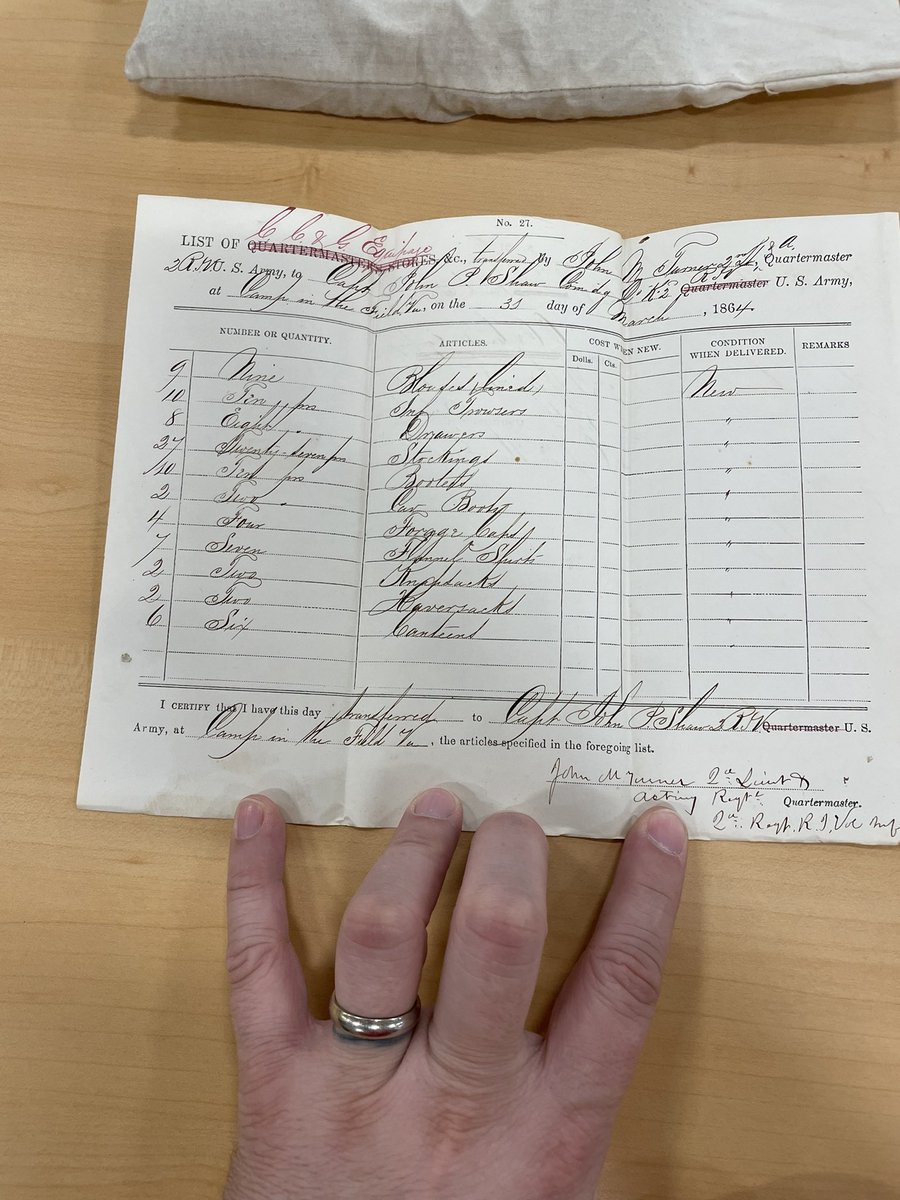 No. 27.
C. C. & G. Equipage
LIST OF QUARTERMASTER'S STORES, &c., transferred by John M Turner 2nd Lt & A. Quartermaster
2 R.I.V U. S. Army, to Capt John P. Shaw Comdg Co K 2 R.I.V. Quartermaster U. S. Army,
at Camp in the Field Va, on the 31 day of March, 1864.
NUMBER OR QUANTITY. ARTICLES. COST WHEN NEW. CONDITION WHEN DELIVERED. REMARKS
Dolls. Cts.
9 Nine Blouses (lined) New
10 Ten prs Inf Trowsers "
8 Eight " Drawers "
27 Twenty-seven prs Stockings "
10 Ten prs Bootees "
2 Two " Cav Boots "
4 Four Forage Caps "
7 Seven Flannel Shirts "
2 Two Knapsacks "
2 Two Haversacks "
6 Six Canteens "
I CERTIFY that I have this day transferred to Capt John P Shaw 2 R.I.V Quartermaster U. S.
Army, at Camp in the Field Va, the articles specified in the foregoing list.
John M Turner 2d Lieut &
acting Regtl Quartermaster.
2d Regt. R. I. Vol Inf